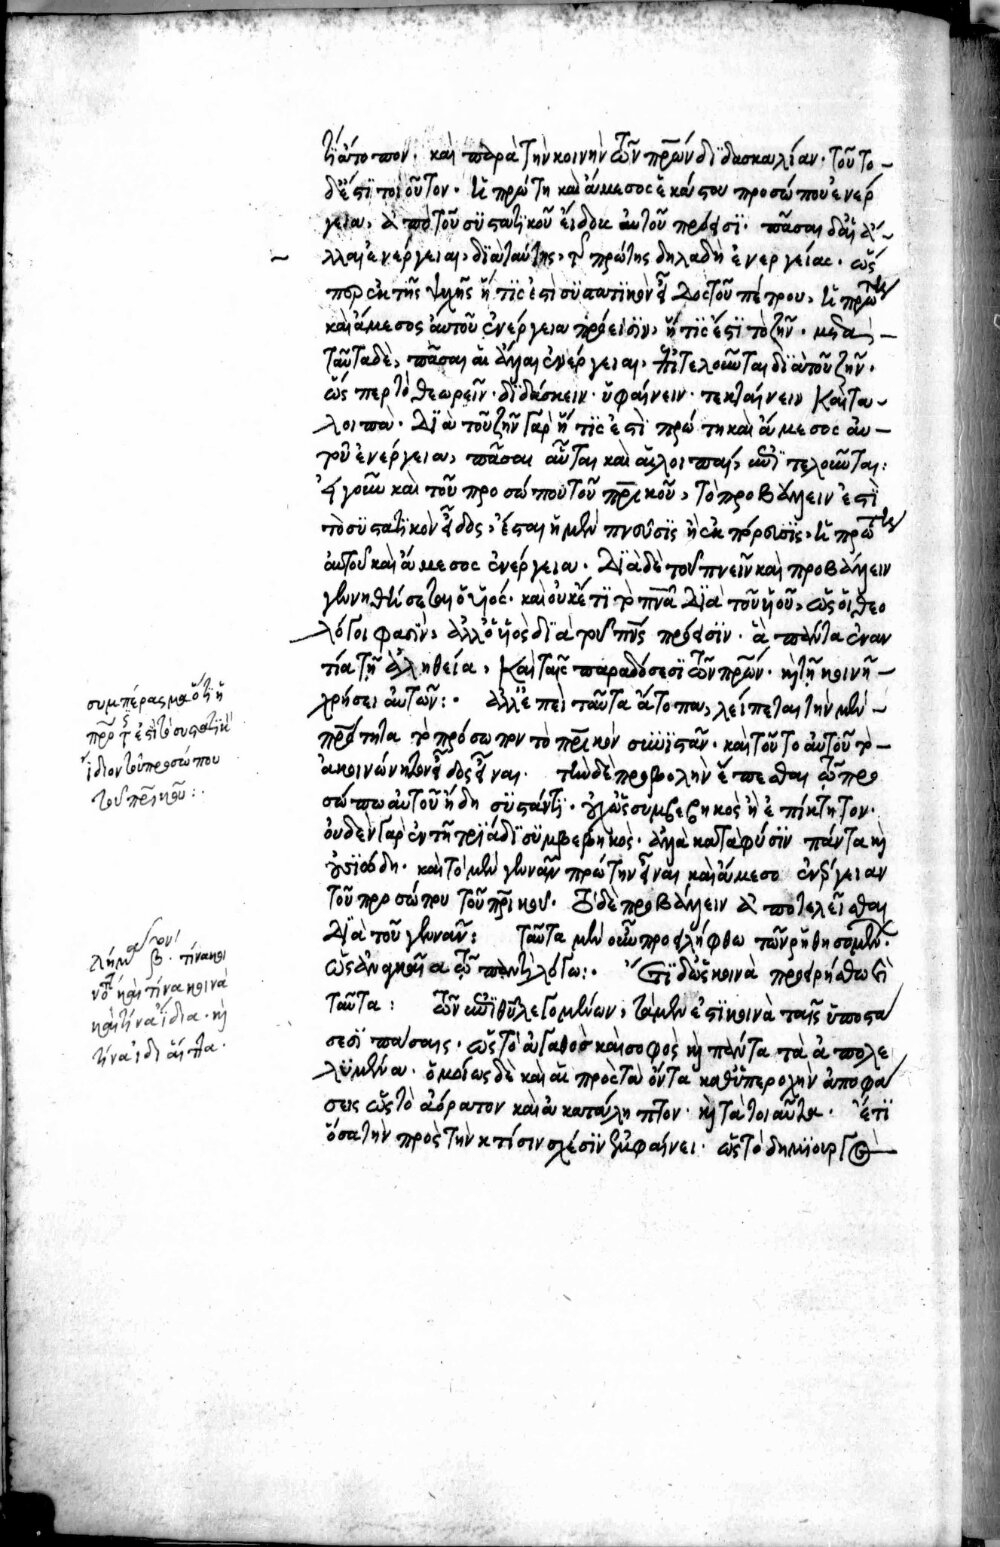 τι ἄτοπον· καὶ παρὰ τὴν κοινὴν τῶν πρων διδασκαλίαν· τοῦτο
δέ ἐστι τοιοῦτον· ἡ πρώτη καὶ ἄμεσος ἑκάστου προσώπου ἐνέρ
γεια, ἀπὸ τοῦ συστατικοῦ εἴδους αὐτοῦ πρόεισι· πᾶσαι δὲ αἱ ἄ
λλαι ἐνέργειαι, διὰ ταύτης, τῆς πρώτης δηλαδὴ ἐνεργείας· ὥς
περ ἐκ τῆς ψυχῆς ἥτις ἐστὶ συστατικὸν εἶδος τοῦ πέτρου, ἡ πρώτη
καὶ ἄμεσος αὐτοῦ ἐνέργεια πρόεισιν, ἥτις ἐστὶ τὸ ζῆν· μετὰ
ταῦτα δὲ, πᾶσαι αἱ ἄλλαι ἐνέργειαι, ἐπιτελοῦνται διὰ τοῦ ζῆν·
ὥσπερ τὸ θεωρεῖν· διδάσκειν· ὑφαίνειν· τεκταίνειν καὶ τὰ
λοιπά· διὰ τοῦ ζῆν γὰρ ἥτις ἐστὶ πρώτη καὶ ἄμεσος αὐ
τοῦ ἐνέργεια, πᾶσαι αὗται καὶ αἱ λοιπαὶ, ἐπιτελοῦνται:
εἰ γοῦν καὶ τοῦ προσώπου τοῦ πρικοῦ, τὸ προβάλλειν ἐστὶ
τὸ συστατικὸν εἶδος, ἔσται ἡ μὲν πνεῦσις ἢ ἐκπόρευσις, ἡ πρώτη
αὐτοῦ καὶ ἄμεσος ἐνέργεια· διὰ δὲ τοῦ πνεῖν καὶ προβάλλειν
γεννηθήσεται ὁ υἱός· καὶ οὐκέτι τὸ πνα διὰ τοῦ υἱοῦ, ὡς οἱ θεο
λόγοι φασὶν, ἀλλ' ὁ υἱὸς διὰ τοῦ πνς πρόεισιν· ἃ πάντα ἐναν
τία τῇ ἀληθείᾳ, καὶ ταῖς παραδόσεσι τῶν πρων· καὶ τῇ κοινῇ
χρήσει αὐτῶν:· ἀλλ' ἐπεὶ ταῦτα ἄτοπα, λείπεται τὴν μὲν
πρότητα τὸ πρόσωπον τὸ πρικὸν συνιστᾶν· καὶ τοῦτο αὐτοῦ τὸ
ἀκοινώνητον εἶδος εἶναι· τὴν δὲ προβολὴν ἕπεσθαι τῷ προ
σώπῳ αὐτοῦ ἤδη συστάντι· οὐχ ὡς συμβεβηκὸς ἢ ἐπίκτητον·
οὐδὲν γὰρ ἐν τῇ τριάδι συμβεβηκός· ἀλλὰ κατὰ φύσιν πάντα καὶ
οὐσιώδη· καὶ τὸ μὲν γεννᾶν πρώτην εἶναι καὶ ἄμεσο ἐνέργειαν
τοῦ προσώπου τοῦ πρικοῦ· τὸ δὲ προβάλλειν ἀποτελεῖσθαι
διὰ τοῦ γεννᾶν: ταῦτα μὲν οὖν προειλήφθω τῶν ῥηθησομένων·
ὡς ἀναγκαῖα τῷ παντὶ λόγῳ:· ἔτι δ' ὡς κοινὰ προειρήσθω καὶ
ταῦτα: τῶν ἐπὶ θυ λεγομένων, τὰ μὲν ἐστὶ κοινὰ ταῖς ὑποστά
σεσι πάσαις· ὡς τὸ ἀγαθὸς καὶ σοφὸς καὶ πάντα τὰ ἀπολε
λυμένα· ὁμοίως δὲ καὶ αἱ πρὸς τὰ ὄντα καθ' ὑπεροχὴν ἀποφά
σεις ὡς τὸ ἀόρατον καὶ ἀκατάληπτον· καὶ τὰ τοιαῦτα· ἔτι
ὅσα τὴν πρὸς τὴν κτίσιν σχέσιν ἐμφαίνει· ὡς τὸ δημιουργὸς
συμπέρασμα ὅτι ἡ
πρότης ἐστὶ τὸ συστατικὸν
ἴδιον τοῦ προσώπου
τοῦ πρικοῦ:·
λῆμμα βον· τίνα κοι
νὰ καὶ τίνα κοινὰ
καὶ τίνα ἴδια· καὶ
τίνα ἰδιαίτατα·